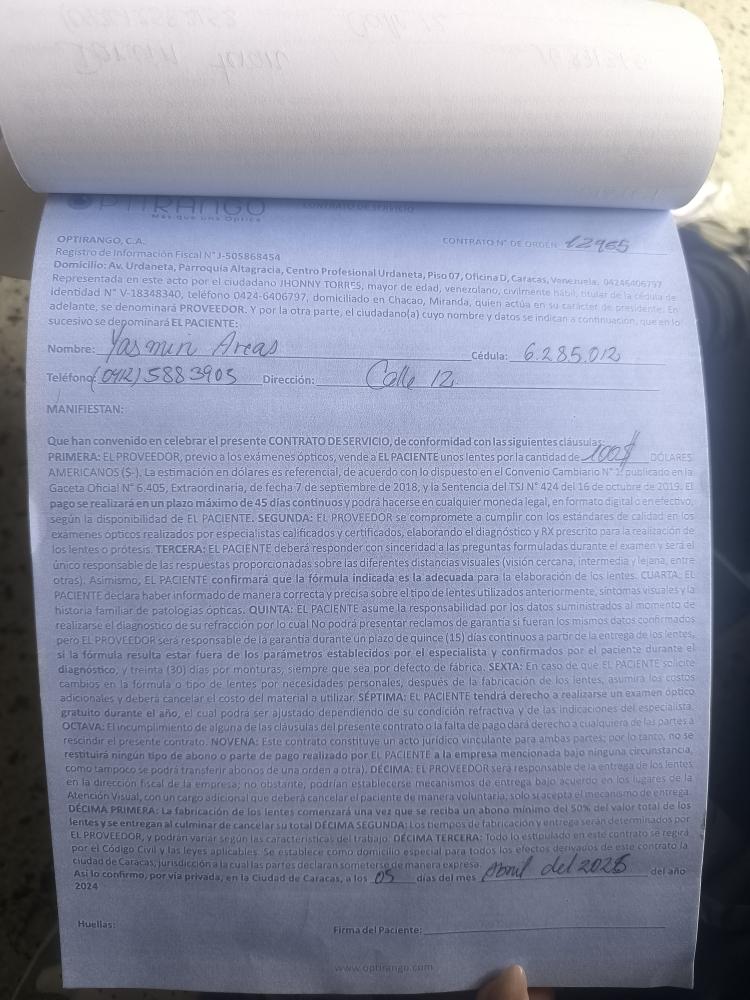 OPTIRANGO
Más que una Óptica
CONTRATO DE SERVICIO
OPTIRANGO, C.A.
CONTRATO N° DE ORDEN 12965
Registro de Información Fiscal N° J-505868454
Domicilio: Av. Urdaneta, Parroquia Altagracia, Centro Profesional Urdaneta, Piso 07, Oficina D, Caracas, Venezuela. 04246406797
Representada en este acto por el ciudadano JHONNY TORRES, mayor de edad, venezolano, civilmente hábil, titular de la cédula de
identidad N° V-18348340, teléfono 0424-6406797, domiciliado en Chacao, Miranda, quien actúa en su carácter de presidente. En
adelante, se denominará PROVEEDOR. Y por la otra parte, el ciudadano(a) cuyo nombre y datos se indican a continuación, que en lo
sucesivo se denominará EL PACIENTE:
Nombre: Yasmin Areas Cédula: 6.285.012
Teléfono: (0412) 5883905 Dirección: Calle 12
MANIFIESTAN:
Que han convenido en celebrar el presente CONTRATO DE SERVICIO, de conformidad con las siguientes cláusulas:
PRIMERA: EL PROVEEDOR, previo a los exámenes ópticos, vende a EL PACIENTE unos lentes por la cantidad de 100$ DÓLARES
AMERICANOS ($-). La estimación en dólares es referencial, de acuerdo con lo dispuesto en el Convenio Cambiario N° 1, publicado en la
Gaceta Oficial N° 6.405, Extraordinaria, de fecha 7 de septiembre de 2018, y la Sentencia del TSJ N° 424 del 16 de octubre de 2019. El
pago se realizará en un plazo máximo de 45 días continuos y podrá hacerse en cualquier moneda legal, en formato digital o en efectivo,
según la disponibilidad de EL PACIENTE. SEGUNDA: EL PROVEEDOR se compromete a cumplir con los estándares de calidad en los
exámenes ópticos realizados por especialistas calificados y certificados, elaborando el diagnóstico y RX prescrito para la realización de
los lentes o prótesis. TERCERA: EL PACIENTE deberá responder con sinceridad a las preguntas formuladas durante el examen y será el
único responsable de las respuestas proporcionadas sobre las diferentes distancias visuales (visión cercana, intermedia y lejana, entre
otras). Asimismo, EL PACIENTE confirmará que la fórmula indicada es la adecuada para la elaboración de los lentes. CUARTA: EL
PACIENTE declara haber informado de manera correcta y precisa sobre el tipo de lentes utilizados anteriormente, síntomas visuales y la
historia familiar de patologías ópticas. QUINTA: EL PACIENTE asume la responsabilidad por los datos suministrados al momento de
realizarse el diagnostico de su refracción por lo cual No podrá presentar reclamos de garantía si fueran los mismos datos confirmados
pero EL PROVEEDOR será responsable de la garantía durante un plazo de quince (15) días continuos a partir de la entrega de los lentes,
si la fórmula resulta estar fuera de los parámetros establecidos por el especialista y confirmados por el paciente durante el
diagnóstico, y treinta (30) días por monturas, siempre que sea por defecto de fábrica. SEXTA: En caso de que EL PACIENTE solicite
cambios en la fórmula o tipo de lentes por necesidades personales, después de la fabricación de los lentes, asumirá los costos
adicionales y deberá cancelar el costo del material a utilizar. SÉPTIMA: EL PACIENTE tendrá derecho a realizarse un examen óptico
gratuito durante el año, el cual podrá ser ajustado dependiendo de su condición refractiva y de las indicaciones del especialista.
OCTAVA: El incumplimiento de alguna de las cláusulas del presente contrato o la falta de pago dará derecho a cualquiera de las partes a
rescindir el presente contrato. NOVENA: Este contrato constituye un acto jurídico vinculante para ambas partes; por lo tanto, no se
restituirá ningún tipo de abono o parte de pago realizado por EL PACIENTE a la empresa mencionada bajo ninguna circunstancia,
como tampoco se podrá transferir abonos de una orden a otra). DÉCIMA: EL PROVEEDOR será responsable de la entrega de los lentes
en la dirección fiscal de la empresa; no obstante, podrían establecerse mecanismos de entrega bajo acuerdo en los lugares de la
Atención Visual, con un cargo adicional que deberá cancelar el paciente de manera voluntaria, solo si acepta el mecanismo de entrega.
DÉCIMA PRIMERA: La fabricación de los lentes comenzará una vez que se reciba un abono mínimo del 50% del valor total de los
lentes y se entregan al culminar de cancelar su total DÉCIMA SEGUNDA: Los tiempos de fabricación y entrega serán determinados por
EL PROVEEDOR, y podrán variar según las características del trabajo. DÉCIMA TERCERA: Todo lo estipulado en este contrato se regirá
por el Código Civil y las leyes aplicables. Se establece como domicilio especial para todos los efectos derivados de este contrato la
ciudad de Caracas, jurisdicción a la cual las partes declaran someterse de manera expresa.
Así lo confirmo, por vía privada, en la Ciudad de Caracas, a los 05 días del mes Abril del 2025 del año
2024
Huellas:
Firma del Paciente:
www.optirango.com